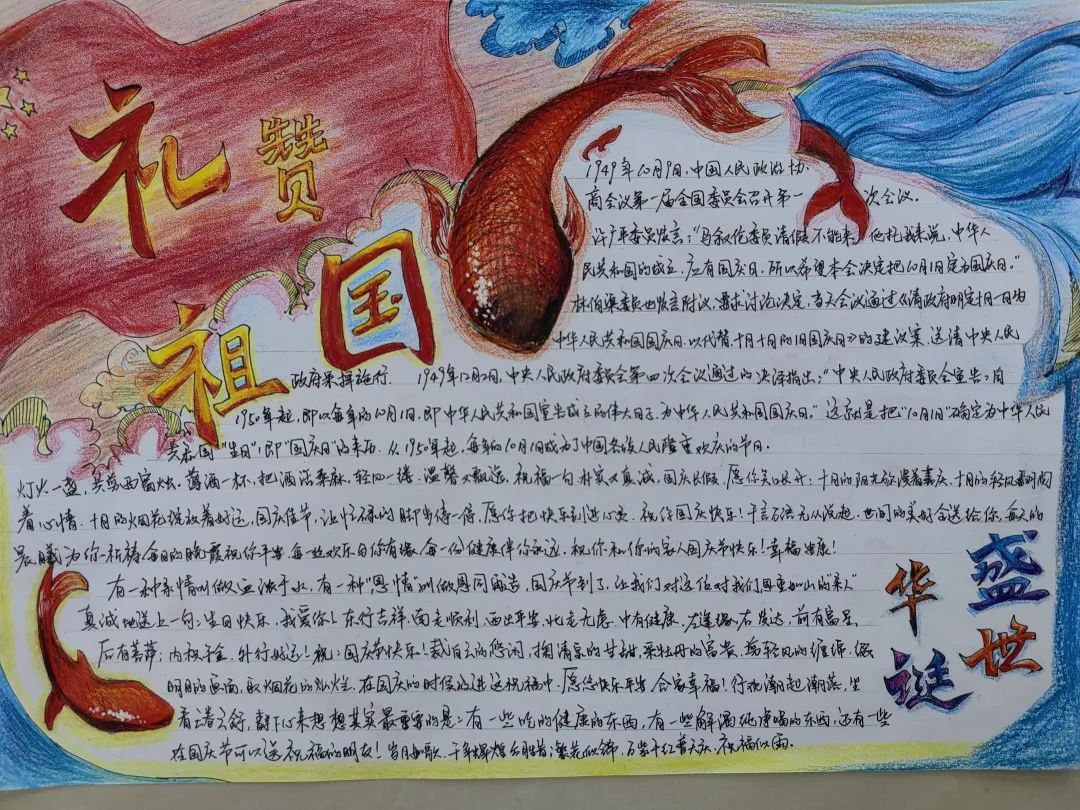 礼赞
祖国
1949年10月9日,中国人民政治协
商会议第一届全国委员会召开第一次会议.
许广平委员发言:“马叙伦委员请假不能来,他托我来说,中华人
民共和国的成立,应有国庆日,所以希望本会决定把10月1日定为国庆日。”
林伯渠委员也发言附议,要求讨论决定,当天会议通过《请政府明定十月一日为
中华人民共和国国庆日,以代替十月十日的旧国庆日》的建议案,送请中央人民
政府采择施行. 1949年12月2日,中央人民政府委员会第四次会议通过的决议指出:“中央人民政府委员会宣告:自
1950年起,即以每年的10月1日,即中华人民共和国宣告成立的伟大日子,为中华人民共和国国庆日。”这就是把“10月1日”确定为中华人民
共和国“生日”,即“国庆日”的来历.从1950年起,每年的10月1日成为了中国各族人民隆重欢庆的节日.
灯火一盏,共剪西窗烛.薄酒一杯,把酒话桑麻,轻风一缕,温馨又飘逸,祝福一句,朴实又真诚,国庆长假,愿你天天开:十月的阳光弥漫着喜庆,十月的轻风
着心情,十月的烟花绽放着好运,国庆佳节,让忙碌的脚步停一停,愿你把快乐刻进心灵,祝你国庆快乐!千言万语无从说起,世间的美好全送给你,每天的
晨曦为你祈祷每日的晚霞祝你平安,每丝欢乐向你有缘,每一份健康伴你永远,祝你和你的家人国庆节快乐!幸福安康!
有一种亲情叫做血浓于水,有一种“恩情”叫做恩同再造,国庆节到了,让我们对这位对我们恩重如山的“亲人”
真诚地送上一句:生日快乐,我爱你!东行吉祥,南走顺利,西出平安,北走无虑,中有健康,左逢源,右发达,前有富星,
后有菩萨;内积千金,外行好运!祝:国庆节快乐!裁白云的悠闲,掬清泉的甘甜,采牡丹的富贵,剪轻风的缠绵,
明月的画面,取烟花的灿烂,在国庆的时候放进这祝福中,愿您快乐平安,合家幸福!行观潮起潮落,坐
看云卷云舒,静下心来想想其实最重要的是:有一些吃的健康的东西,有一些解渴纯净喝的东西,还有一些
在国庆节可以送祝福的朋友!岁月如歌,千年辉煌后胜昔;繁花似锦,万紫千红普天庆,祝福似雨.
盛世
华诞